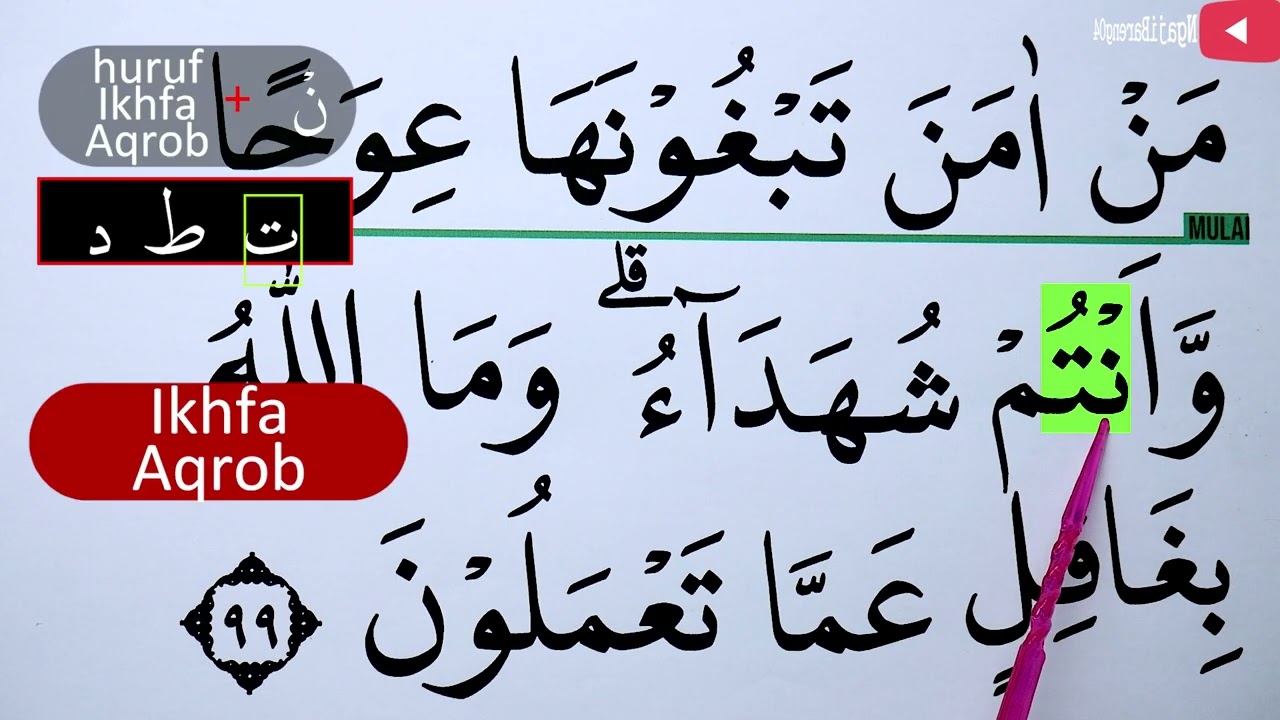 NgajiBareng04
مَنْ اٰمَنَ تَبْغُوْنَهَا عِوَجًا
huruf
Ikhfa
Aqrob
+ نْ
ت ط د
MULAI
وَّاَنْتُمْ شُهَدَاۤءُ ۗ وَمَا اللّٰهُ
Ikhfa
Aqrob
بِغَافِلٍ عَمَّا تَعْمَلُوْنَ ٩٩